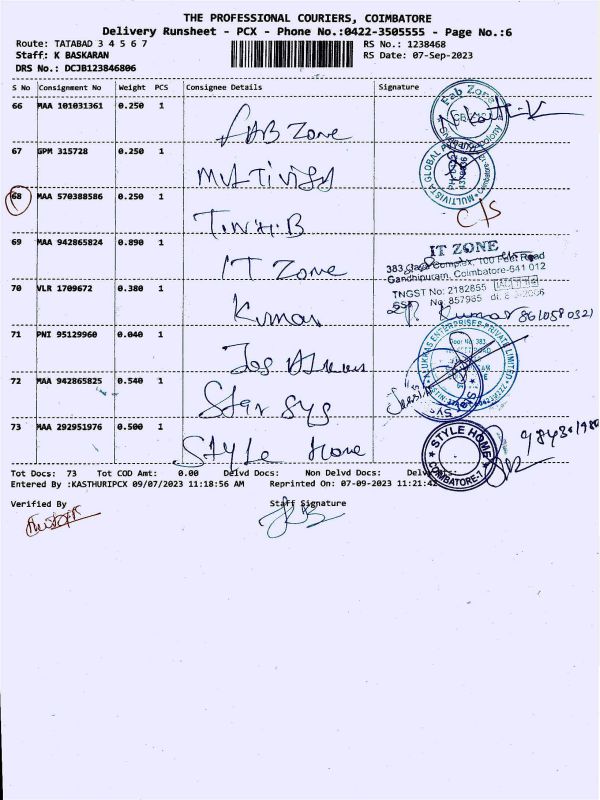 THE PROFESSIONAL COURIERS, COIMBATORE
Delivery Runsheet - PCX - Phone No.:0422-3505555 - Page No.:6
Route: TATABAD 3 4 5 6 7 RS No.: 1238468
Staff: K BASKARAN RS Date: 07-Sep-2023
DRS No.: DCJB123846806
S No Consignment No Weight PCS Consignee Details Signature
66 MAA 101031361 0.250 1 FAB Zone Fab Zone
67 GPM 315728 0.250 1 MULTIVISTA MULTIVISTA GLOBAL
68 MAA 570388586 0.250 1 T.N.H.B C/S
69 MAA 942865824 0.890 1 IT Zone
IT ZONE
383, Complex, 100 Feet Road
Gandhipuram, Coimbatore-641 012
TNGST No: 2182855
No: 857985
70 VLR 1709672 0.380 1 Kumar Kumar 8610580321
71 PNI 95129960 0.040 1 Jos Alukkas ALUKKAS ENTERPRISES PRIVATE LIMITED
Door No. 383
72 MAA 942865825 0.540 1 Star Sys
73 MAA 292951976 0.500 1 Style Home STYLE HOME COIMBATORE-1
Tot Docs: 73 Tot COD Amt: 0.00 Delvd Docs: Non Delvd Docs:
Entered By :KASTHURIPCX 09/07/2023 11:18:56 AM Reprinted On: 07-09-2023 11:21:42
Verified By Staff Signature